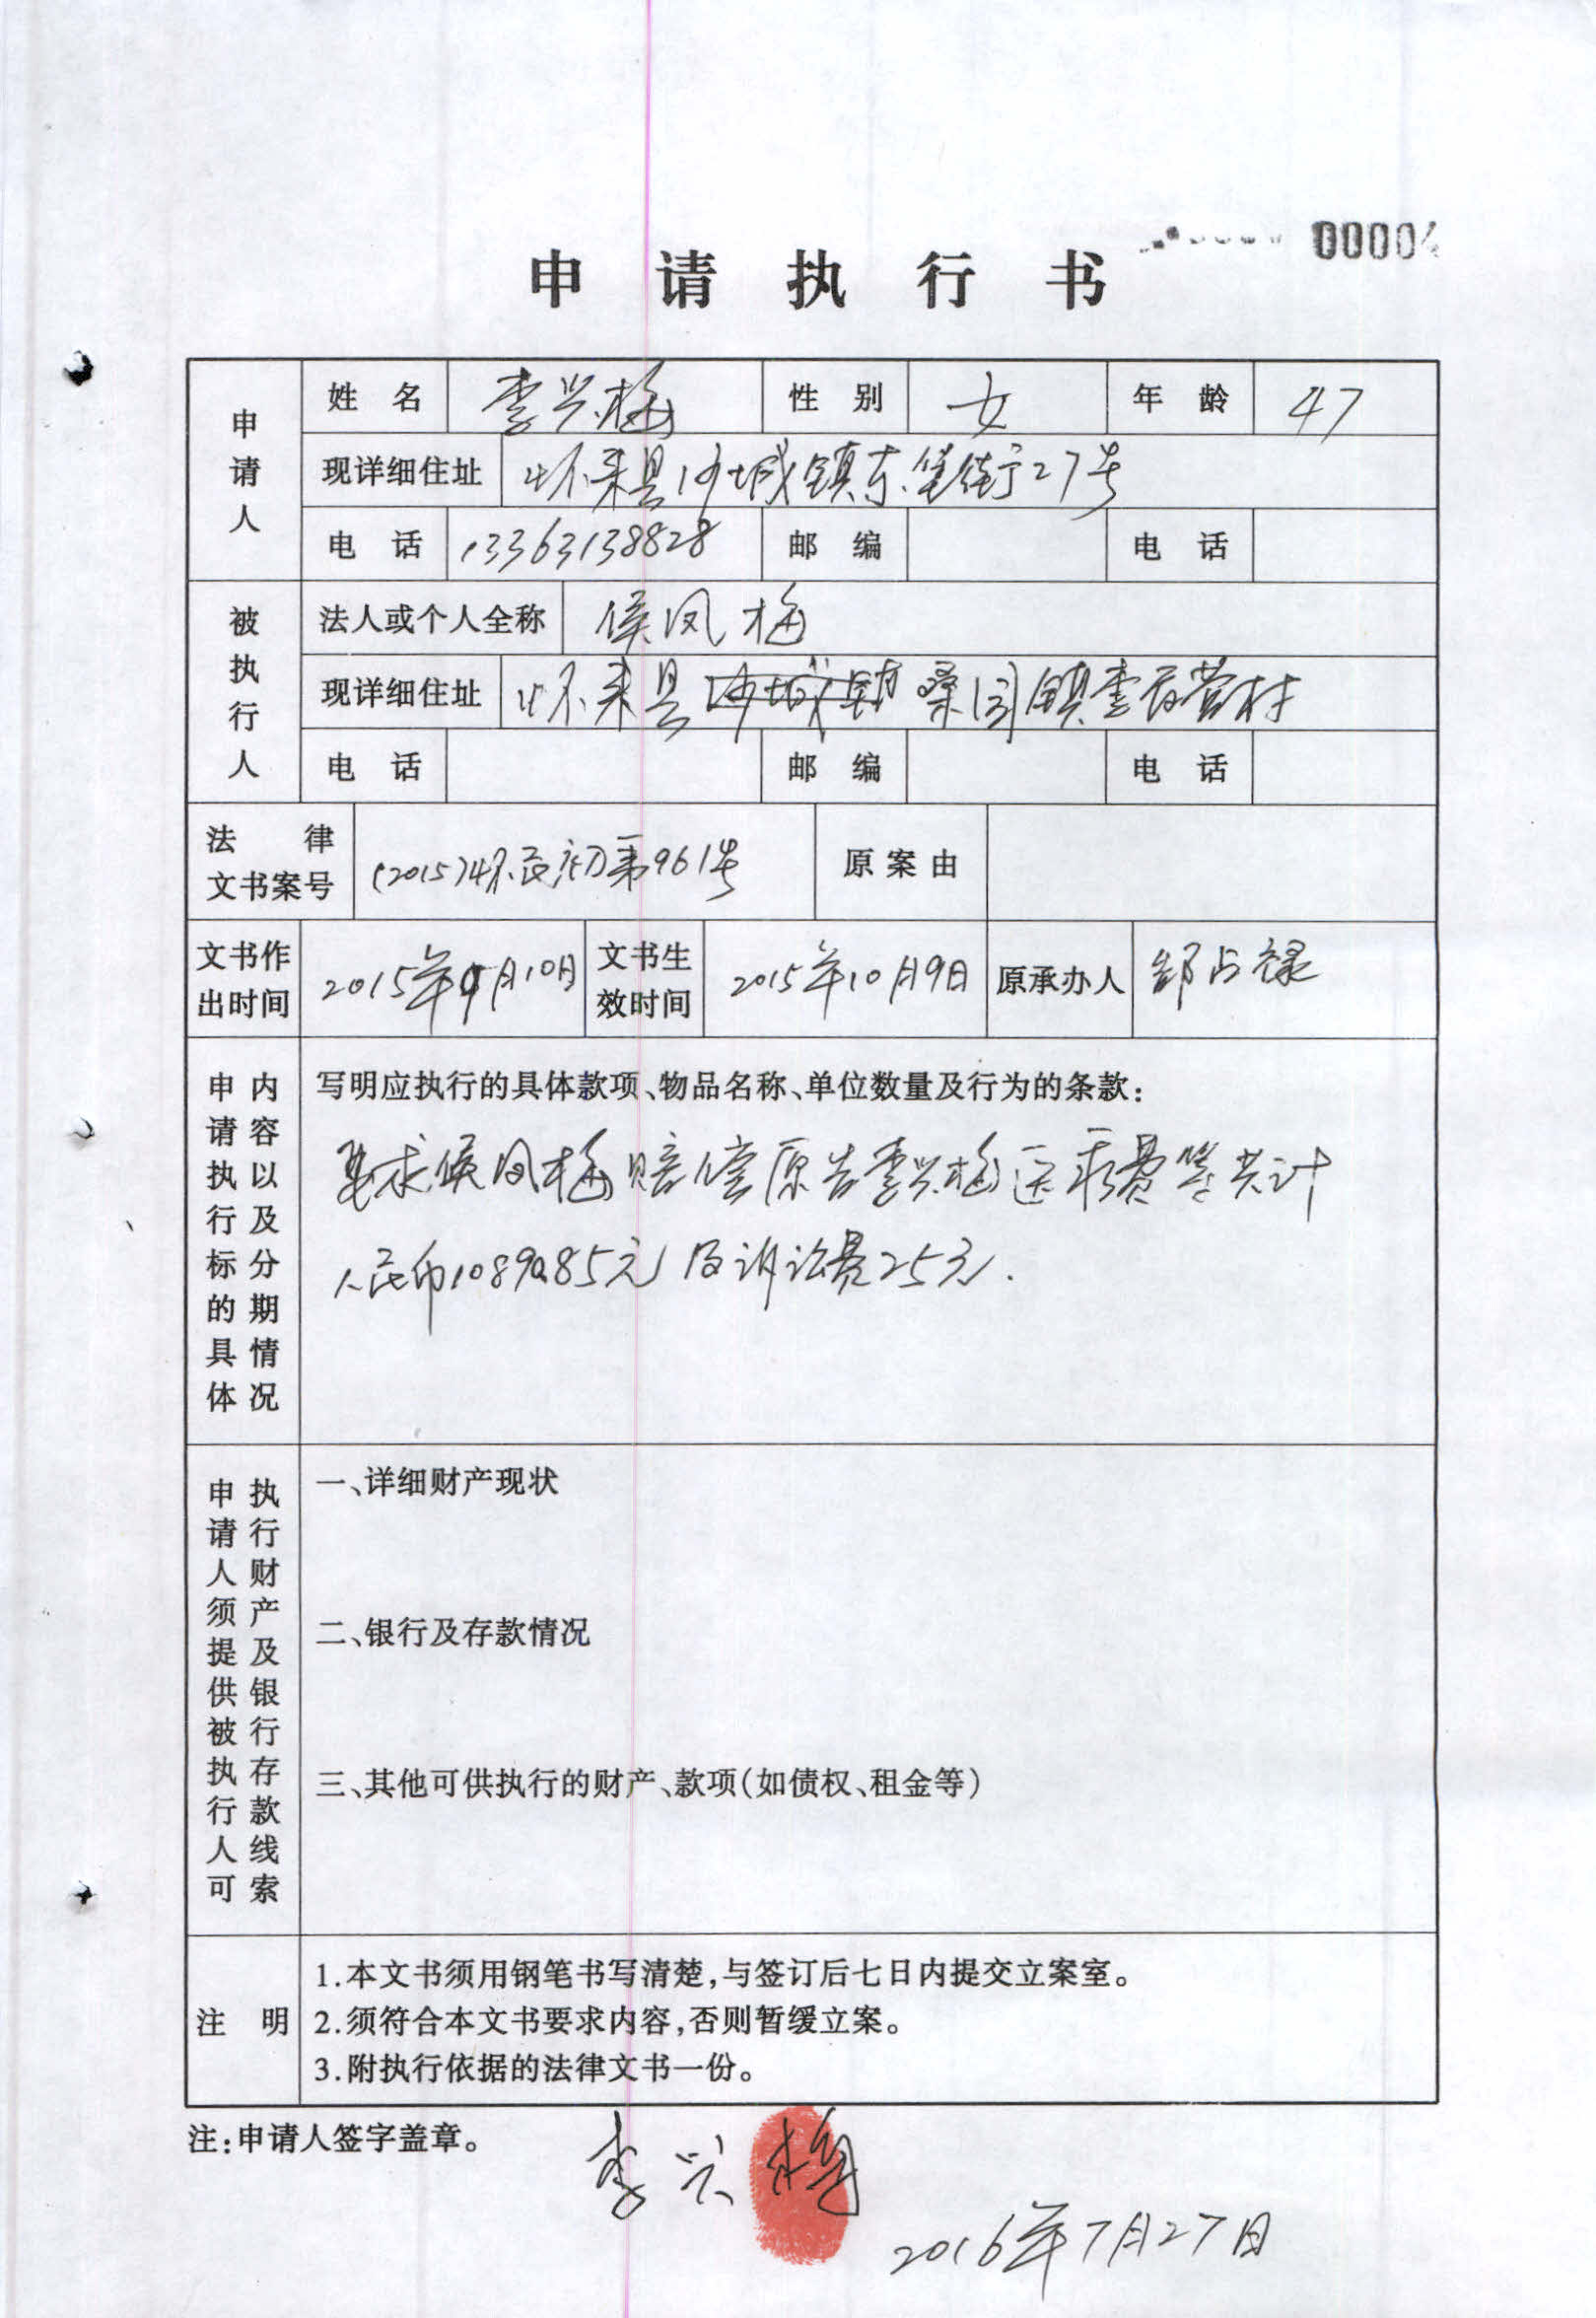 00004
申请执行书
申请人
姓名 李兴梅 性别 女 年龄 47
现详细住址 怀来县沙城镇东堡街27号
电话 13363138828 邮编 电话
被执行人
法人或个人全称 侯凤梅
现详细住址 怀来县沙城镇桑园镇李官营村
电话 邮编 电话
法律文书案号 (2015)怀民初第961号 原案由
文书作出时间 2015年9月10日 文书生效时间 2015年10月9日 原承办人 郜占禄
申请执行标的具体内容以及分期情况
写明应执行的具体款项、物品名称、单位数量及行为的条款:
要求侯凤梅赔偿原告李兴梅医疗费等共计
人民币10890.85元及诉讼费25元.
申请人须提供被执行人可执行财产及银行存款线索
一、详细财产现状
二、银行及存款情况
三、其他可供执行的财产、款项(如债权、租金等)
注明
1.本文书须用钢笔书写清楚,与签订后七日内提交立案室。
2.须符合本文书要求内容,否则暂缓立案。
3.附执行依据的法律文书一份。
注:申请人签字盖章。
李兴梅
2016年7月27日